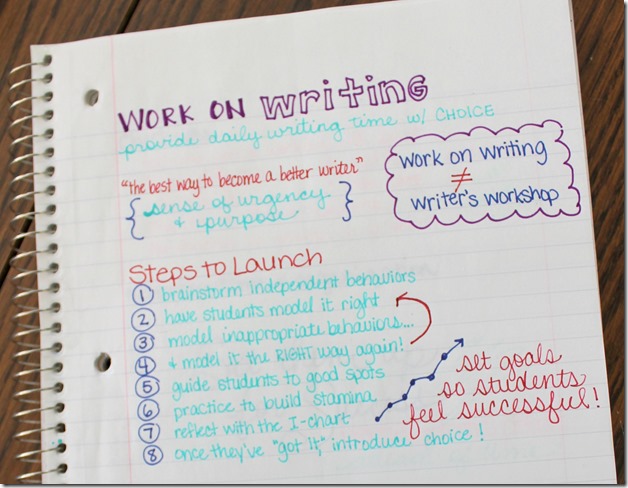 WORK ON writing
provide daily writing time w/ CHOICE
"the best way to become a better writer"
{ sense of urgency
& purpose }
work on writing
≠
writer's workshop
Steps to Launch
1 brainstorm independent behaviors
2 have students model it right
3 model inappropriate behaviors...
4 & model it the RIGHT way again!
5 guide students to good spots
6 practice to build stamina
7 reflect with the I-chart
8 once they've "got it," introduce choice!
set goals
so students
feel successful!